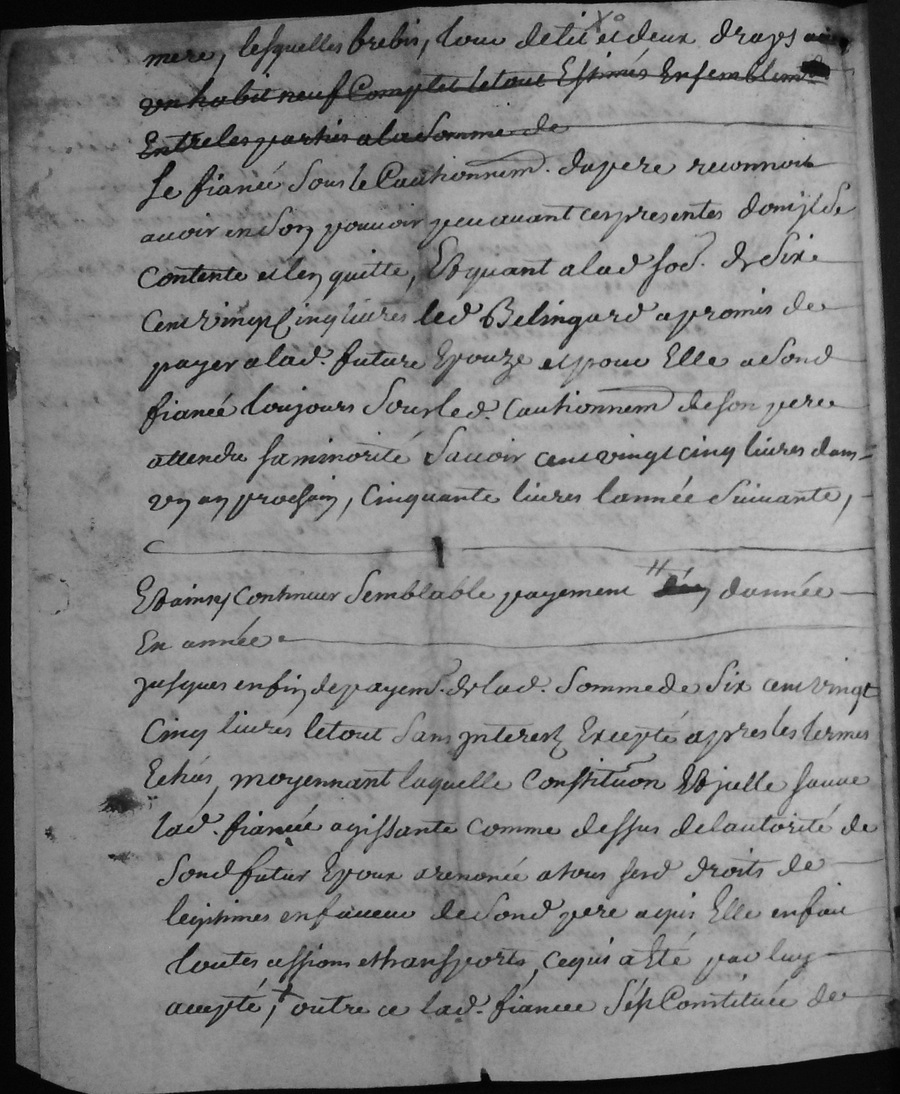 mere, lesquelles brebis, tour de lit et deux draps
un habit neuf Complet le tout Estimés Ensemblem.
Entre les parties a la Somme de
Le fiancé Sous le Cautionnem. du pere reconnoit
avoir en Son pouvoir receu avant ces presentes dont jl Se
Contente et l'en quitte, Et quant a lad. so.e de Six
Cent vingt Cinq livres led. Belingard a promis de
payer a lad. future Epouze et pour Elle a Sond
fiancé toujours Sous led. Cautionnem de son pere
attendu sa minorité Savoir cent vingt cinq livres dans
un an prochain, Cinquante livres l'année Suivante,
Et ainsy Continuer Semblable payement d'année
En année
jusques en fin de payem.t de lad. Somme de Six cent vingt
Cinq livres le tout Sans jnterest Excepté apres les termes
Echûs, moyennant laquelle Constituôn Et jcelle sauve
lad. fiancée agissante Comme dessus de l'autorité de
Sond futur Epoux a renoncé a tous sesd droits de
legitimes en faveur de Sond pere a qui Elle en fait
toutes cessions et transports, ce qui a Eté par luy
accepté, outre ce lad. fiancée S'ést Constituée de